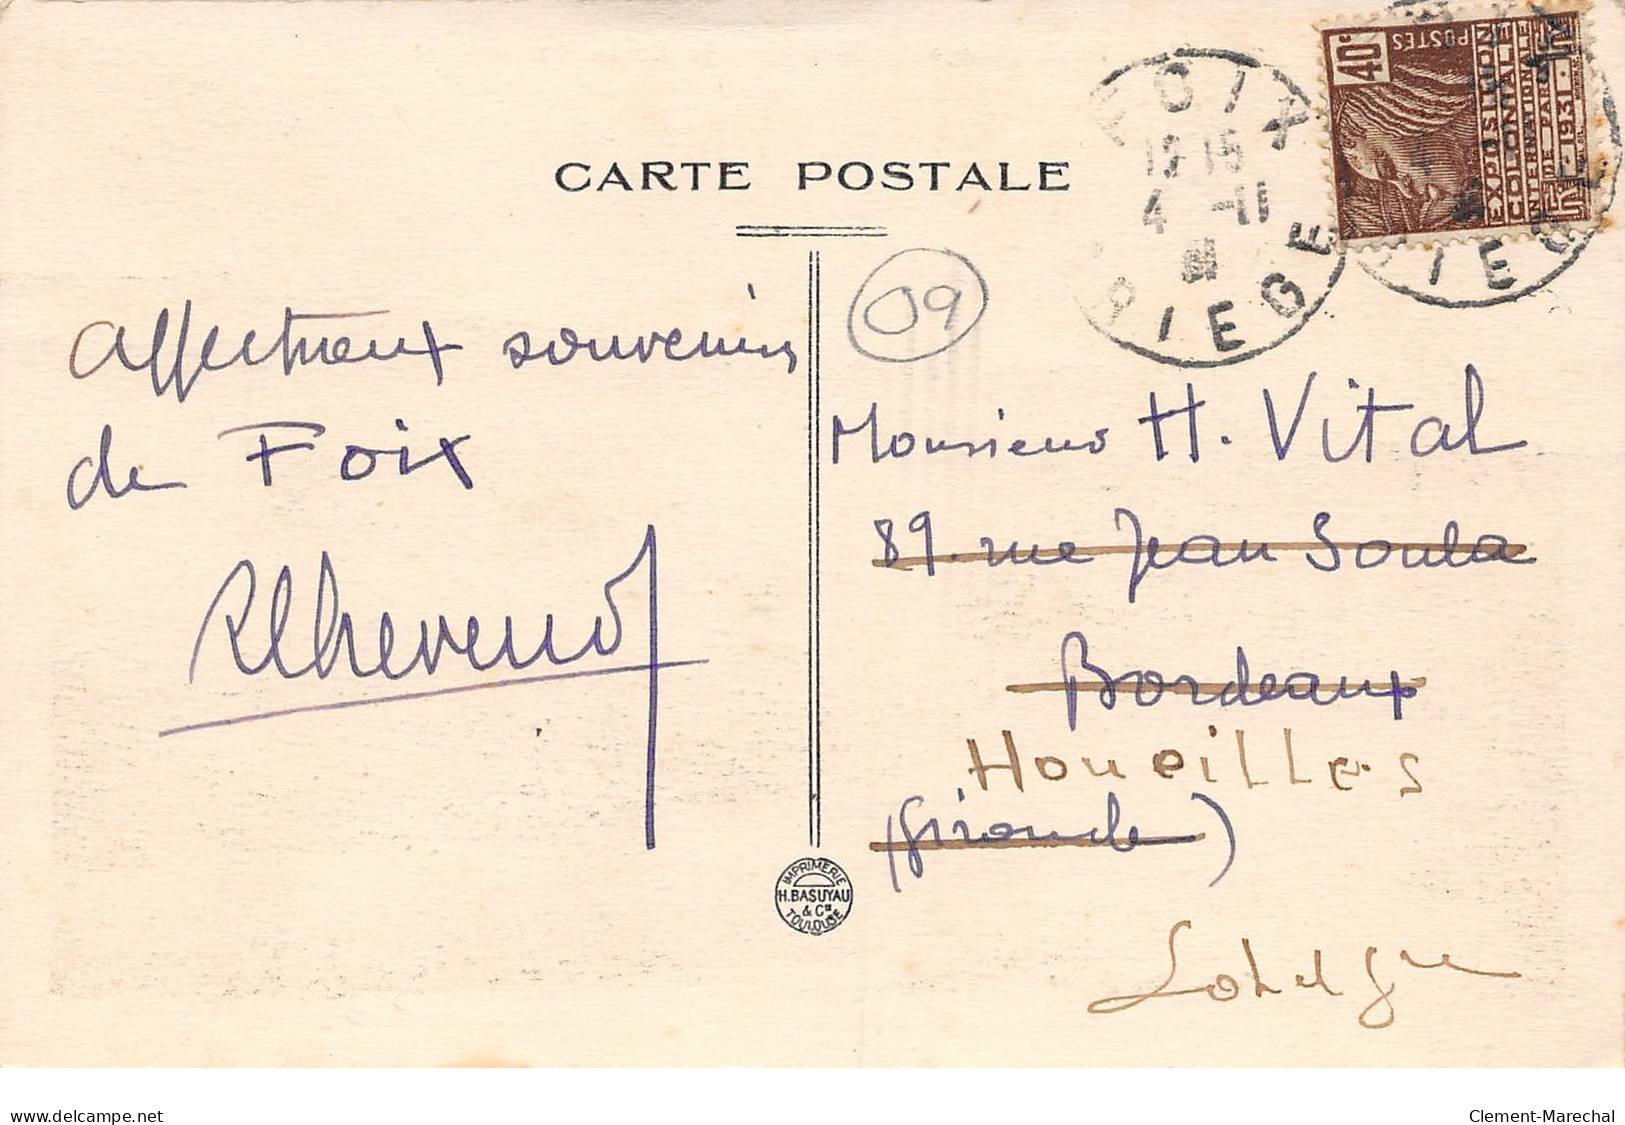 CARTE POSTALE
affectueux souvenirs
de Foix
09
FOIX
4 -11
ARIEGE
40c
POSTES
EXPOSITION
COLONIALE
INTERNATIONALE
DE PARIS
1931
Monsieur H. Vital
89. rue Jean Soula
Bordeaux
Houeilles
(Gironde)
Lot et Gne
IMPRIMERIE
H. BASUYAU
& Cie
TOULOUSE
www.delcampe.net
Clement-Marechal